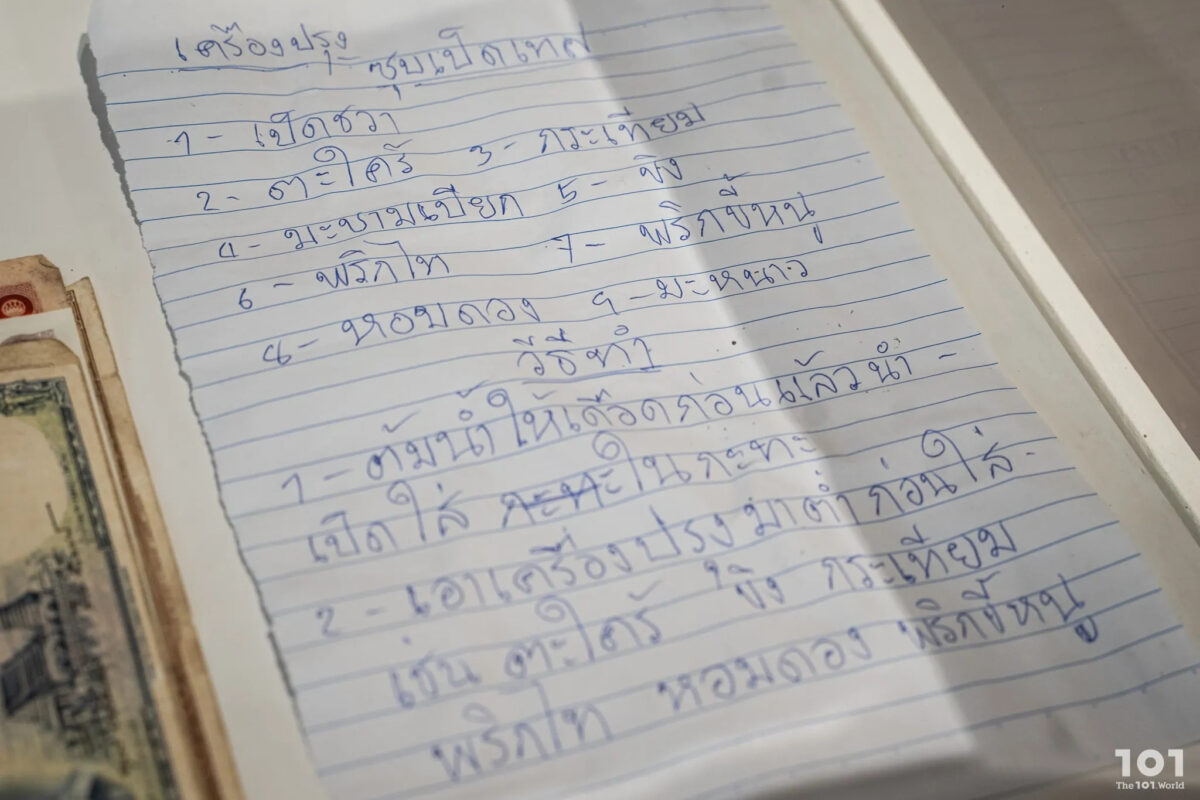 เครื่องปรุง ซุบเป็ดเทศ
1- เป็ดชวา
2- ตะใคร้ 3- กระเทียม
4- มะขามเปียก 5- ขิง
6- พริกไท 7- พริกขี้หนู
8- หอมดอง 9- มะหนาว
วีธีทำ
1- ต้มน้ำให้เดือดก่อนแล้วนำ -
เป็ดใส่ กะทะในกะทะ
2- เอาเครื่องปรุงมาตำก่อนใส่-
เช่น ตะใคร้ ขิง กระเทียม
พริกไท หอมดอง พริกขี้หนู
101
The101.World